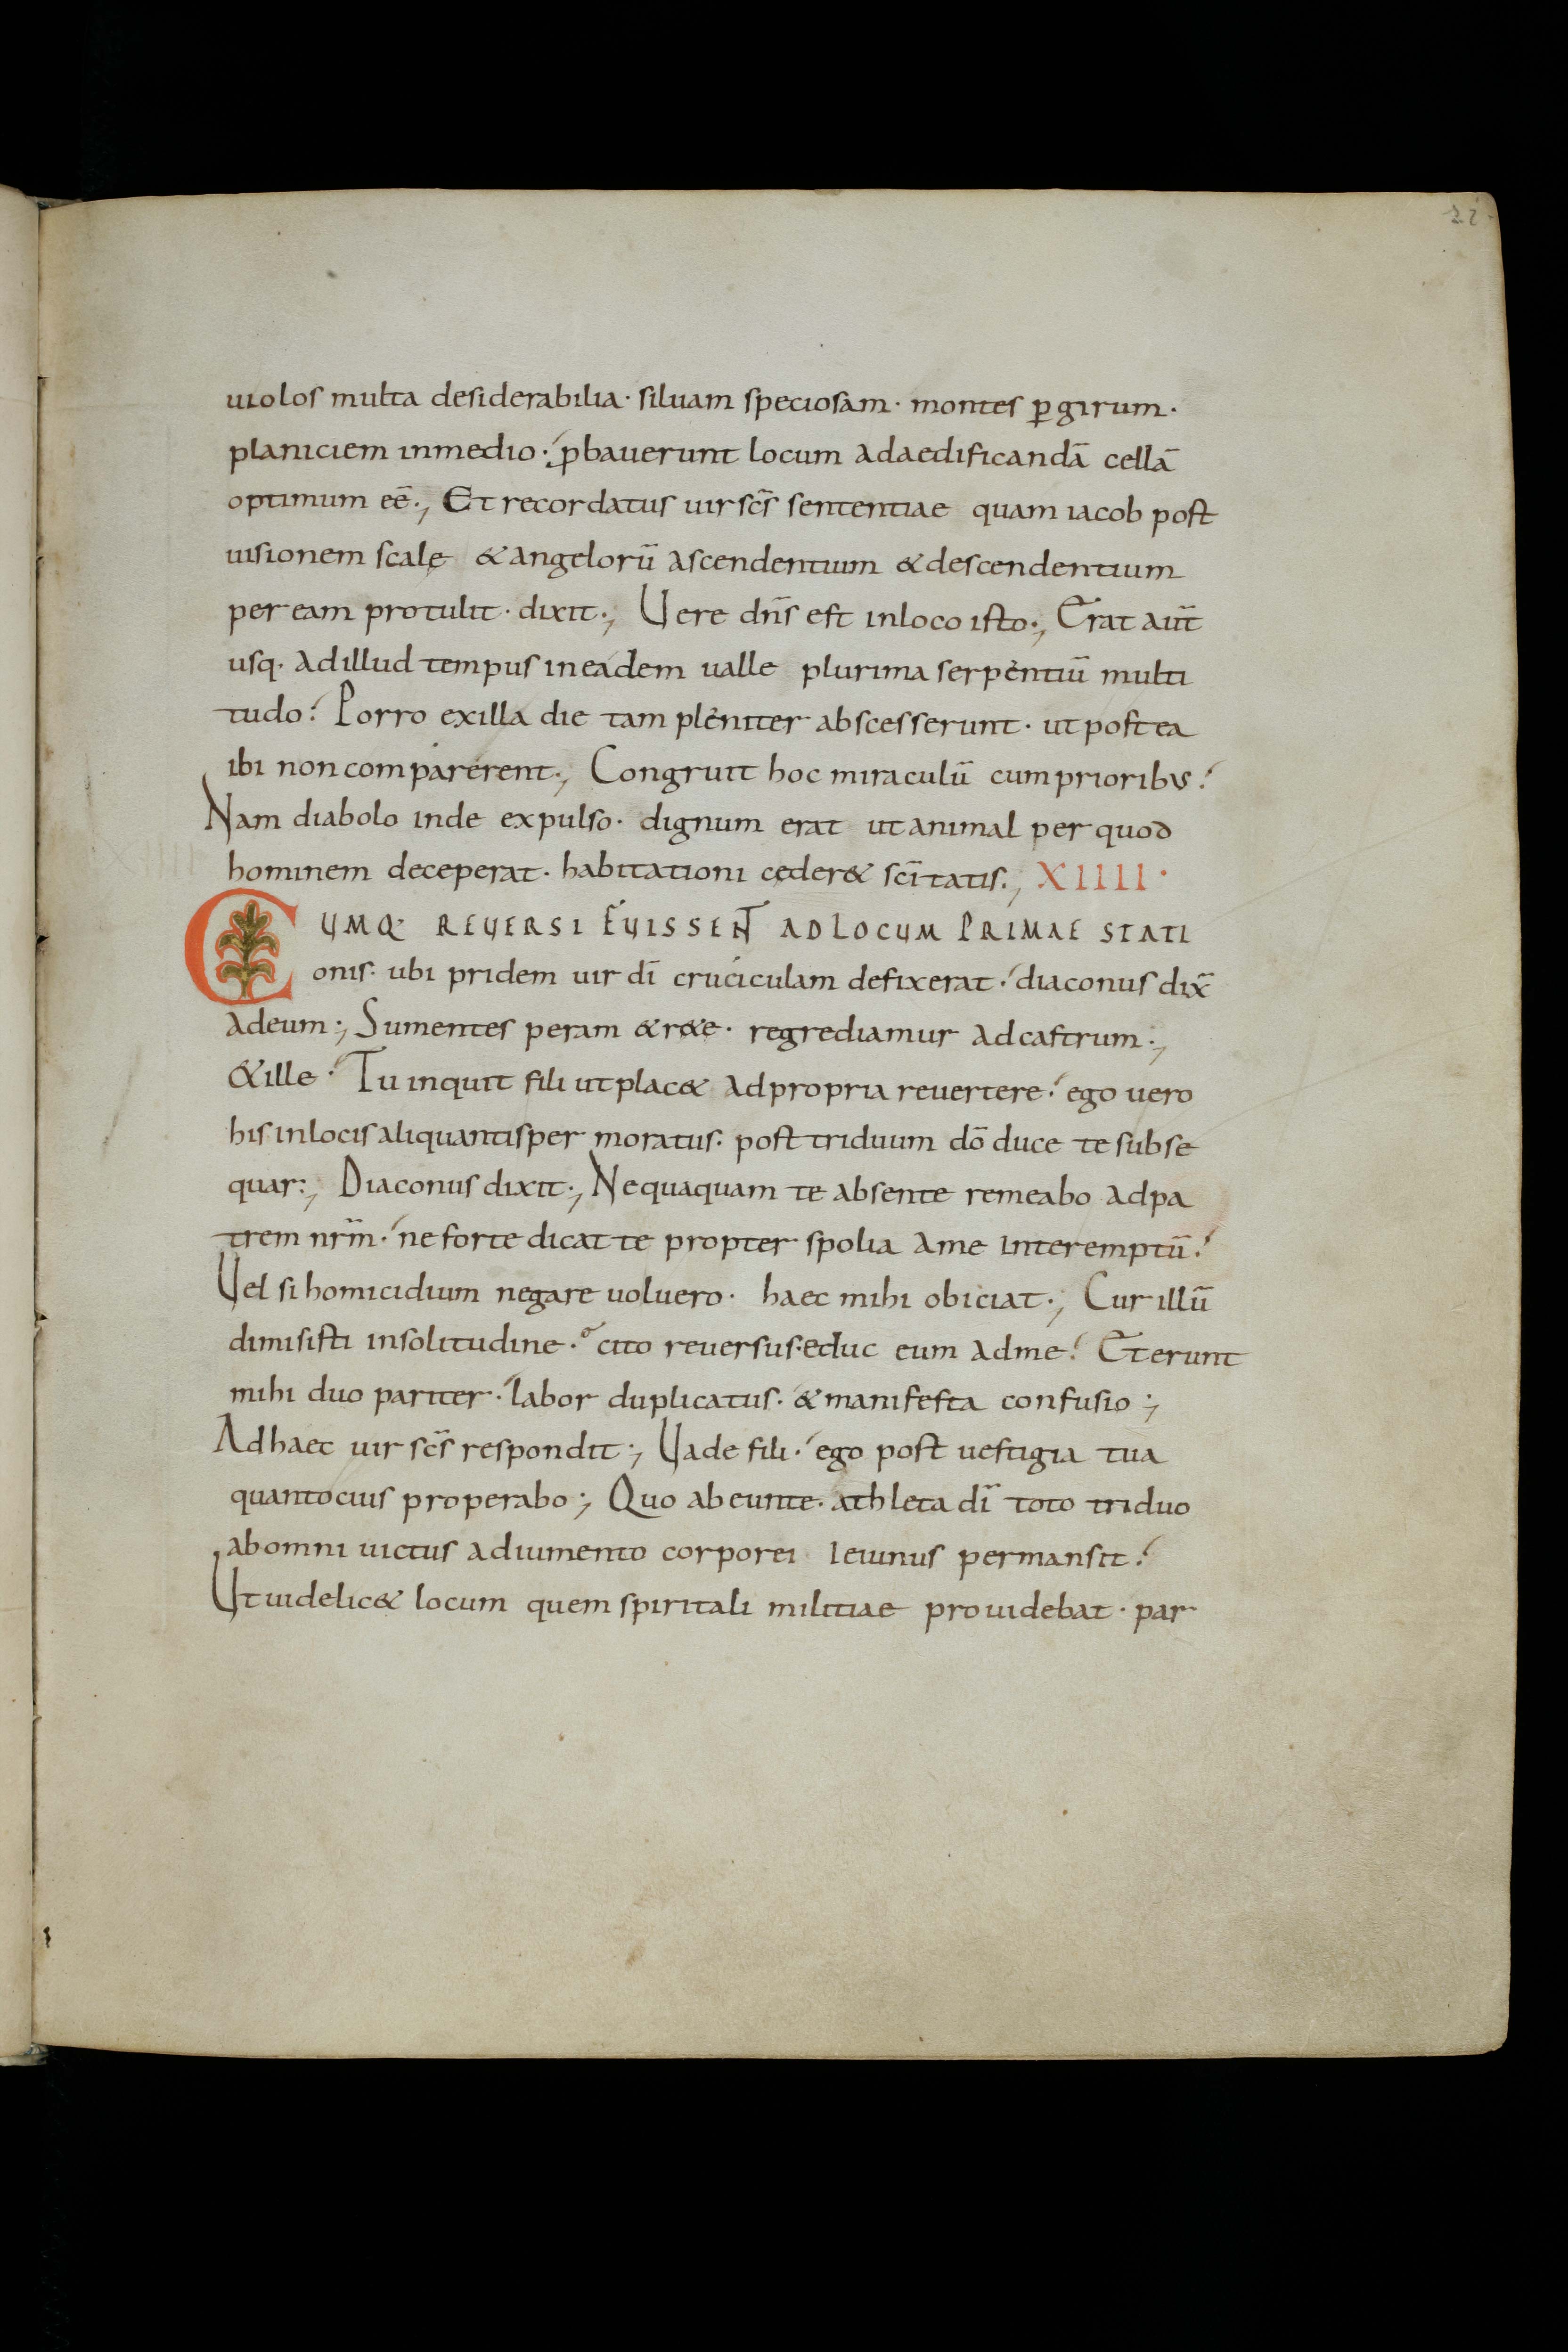 21
uiolos multa desiderabilia· siluam speciosam· montes ꝑ girum·
planiciem inmedio·; ꝓbauerunt locum adaedificandā cellā
optimum eē·, Et recordatus uir scs̄ sententiae quam iacob post
uisionem scalę &angelorū ascendentium &descendentium
per eam protulit· dixit·, Uere dns̄ est inloco isto·, Erat aut̄
usq· adillud tempus ineadem ualle plurima serpentiū multi
tudo? Porro exilla die tam pleniter abscesserunt· ut postea
ibi noncomparerent·, Congruit hoc miraculū cumprioribus?
Nam diabolo inde expulso· dignum erat ut animal per quod
hominem deceperat· habitationi ceder& scītatis·, XIIII·
CUMQ· REUERSI FUISSENT ADLOCUM PRIMAE STATI
onis· ubi pridem uir dī cruciculam defixerat· diaconus dix̄
adeum·, Sumentes peram &r&e· regrediamur adcastrum·,
&ille· Tu inquit fili utplac& adpropria reuertere? ego uero
his inlocis aliquantisper moratus· post triduum dō duce te subse
quar·, Diaconus dixit·, Nequaquam te absente remeabo adpa
trem nrm̄· ne forte dicat te propter spolia ame interemptū?
Uel si homicidium negare uoluero· haec mihi obiciat·, Cur illū
dimisisti insolitudine· cito reuersus·educ eum adme? Et erunt
mihi duo pariter· labor duplicatus· &manifesta confusio·,
Adhaec uir scs̄ respondit·, Uade fili· ego post uestigia tua
quantocius properabo·, Quo abeunte· athleta dī toto triduo
abomni uictus adiumento corporei ieiunus permansit?
Ut uidelic& locum quem spiritali militiae prouidebat· par